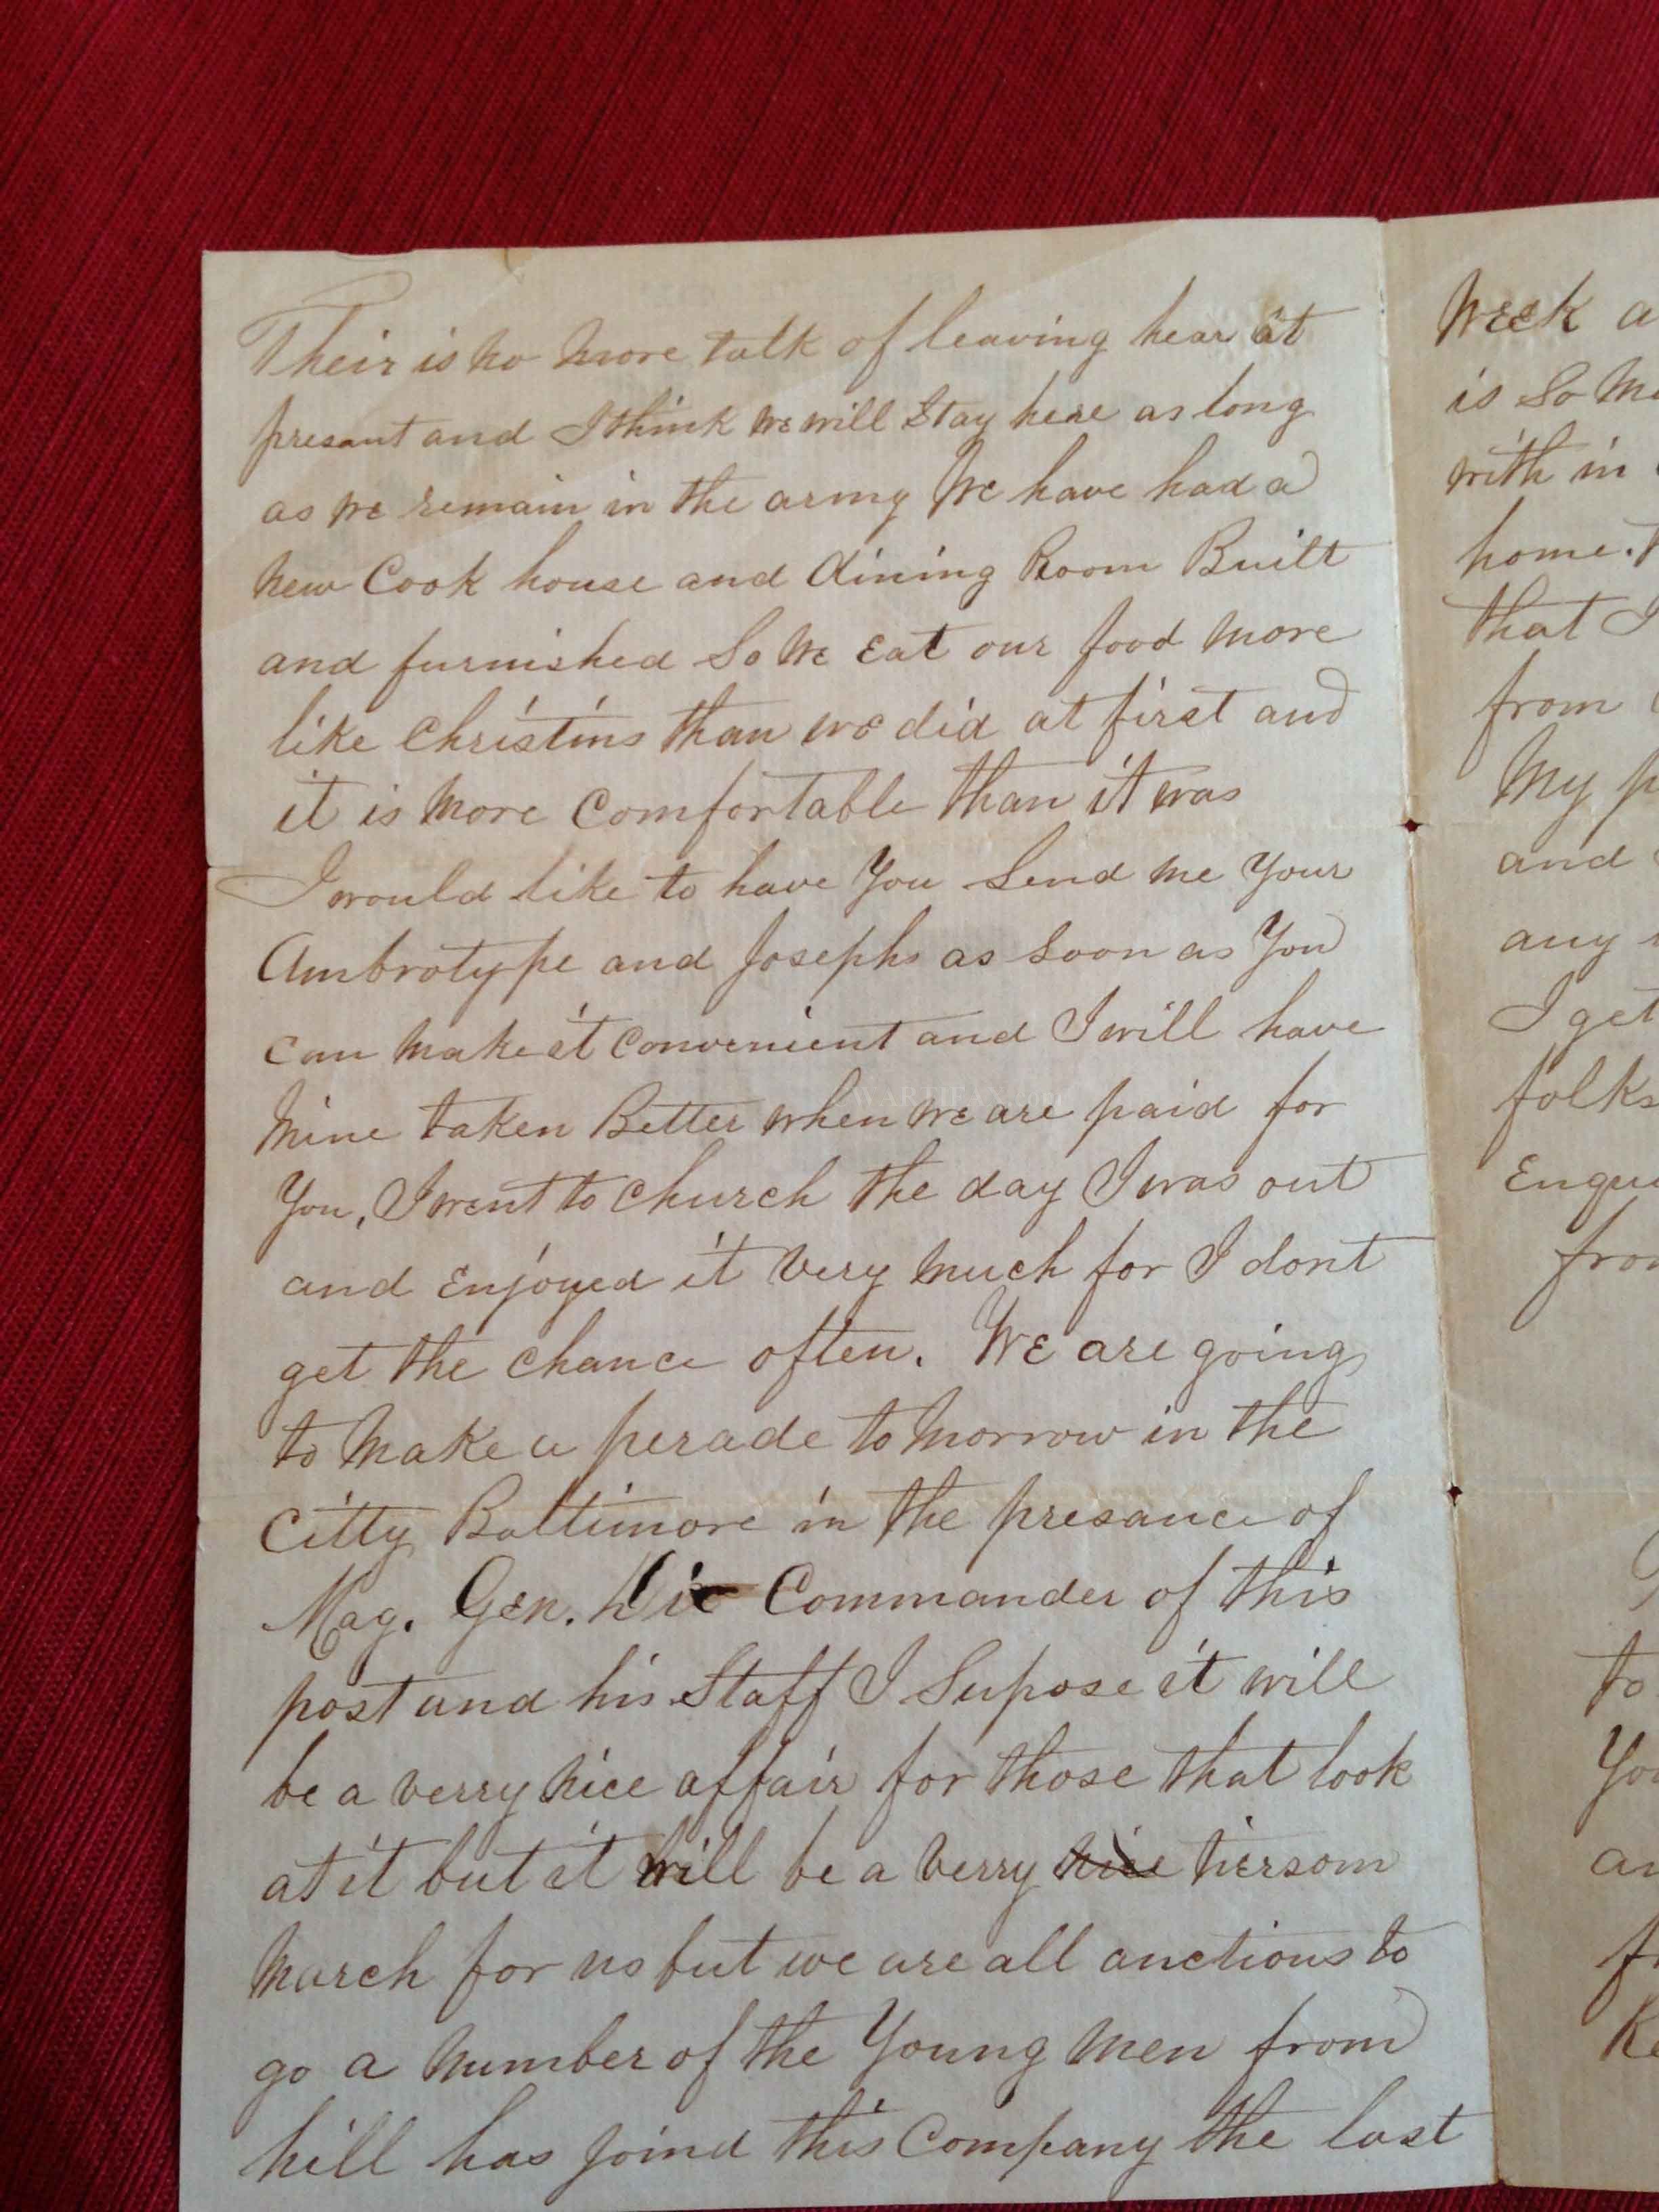 Their is no more talk of leaving hear at
presant and I think we will stay here as long
as we remain in the army We have had a
new Cook house and dining Room Built
and furnished So We Eat our food more
like Christins than we did at first and
it is more Comfortable than it was
I would like to have You Send me Your
Ambrotype and Josephs as soon as You
can make it convenient and I will have
Mine taken Better when we are paid for
You, I went to church the day I was out
and Enjoyed it very much for I dont
get the chance often. We are going
to make a perade to morrow in the
Citty Baltimore in the presance of
Mag. Gen. Dix Commander of this
post and his Staff I Supose it will
be a verry nice affair for those that look
at it but it will be a verry nice tiersom
march for us but we are all anctious to
go a number of the Young men from
hill has joind this Company the last
Week a
is So
with in
home.
that I
from
My p
and
any
I get
folks
to